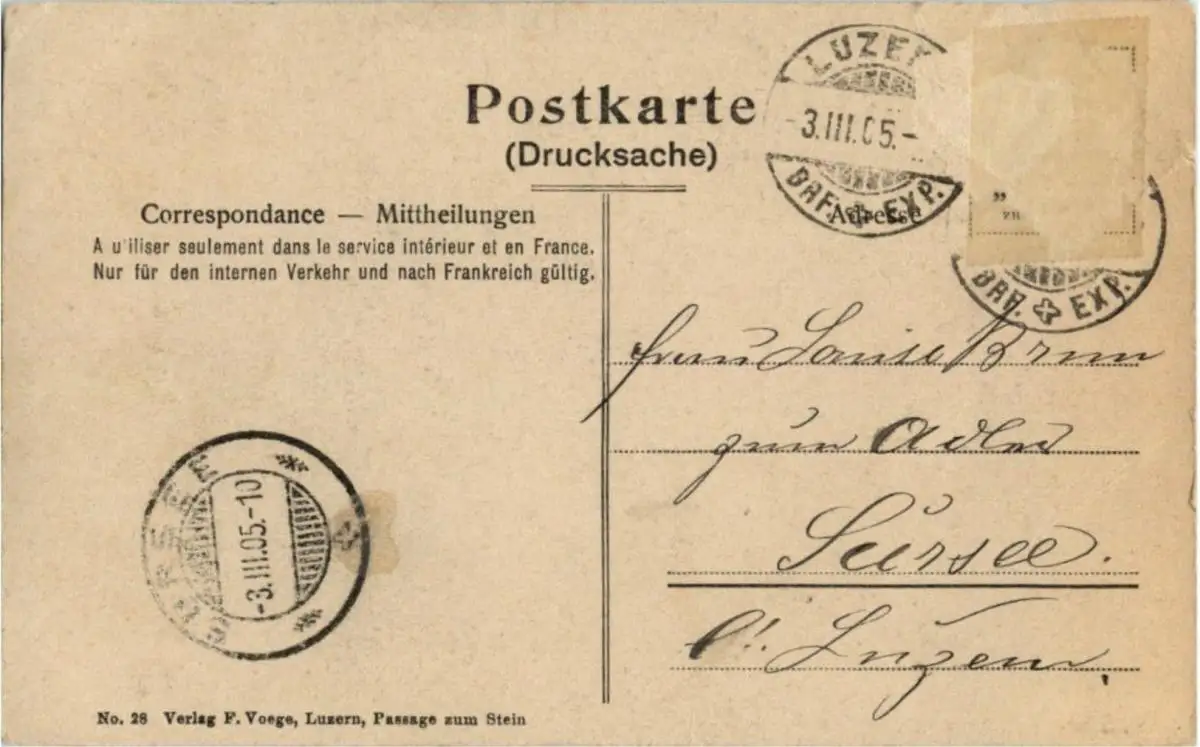 Postkarte
(Drucksache)
LUZE
-3.III.05.-
BRF. EXP.
Adresse
"
zu
BRF. EXP.
Correspondance — Mittheilungen
A u'iliser seulement dans le service intérieur et en France.
Nur für den internen Verkehr und nach Frankreich gültig.
Frau Louise Brun
zum Adler
Sursee.
Ct. Luzern
SURSEE
-3.III.05.-10
No. 28 Verlag F. Voege, Luzern, Passage zum Stein